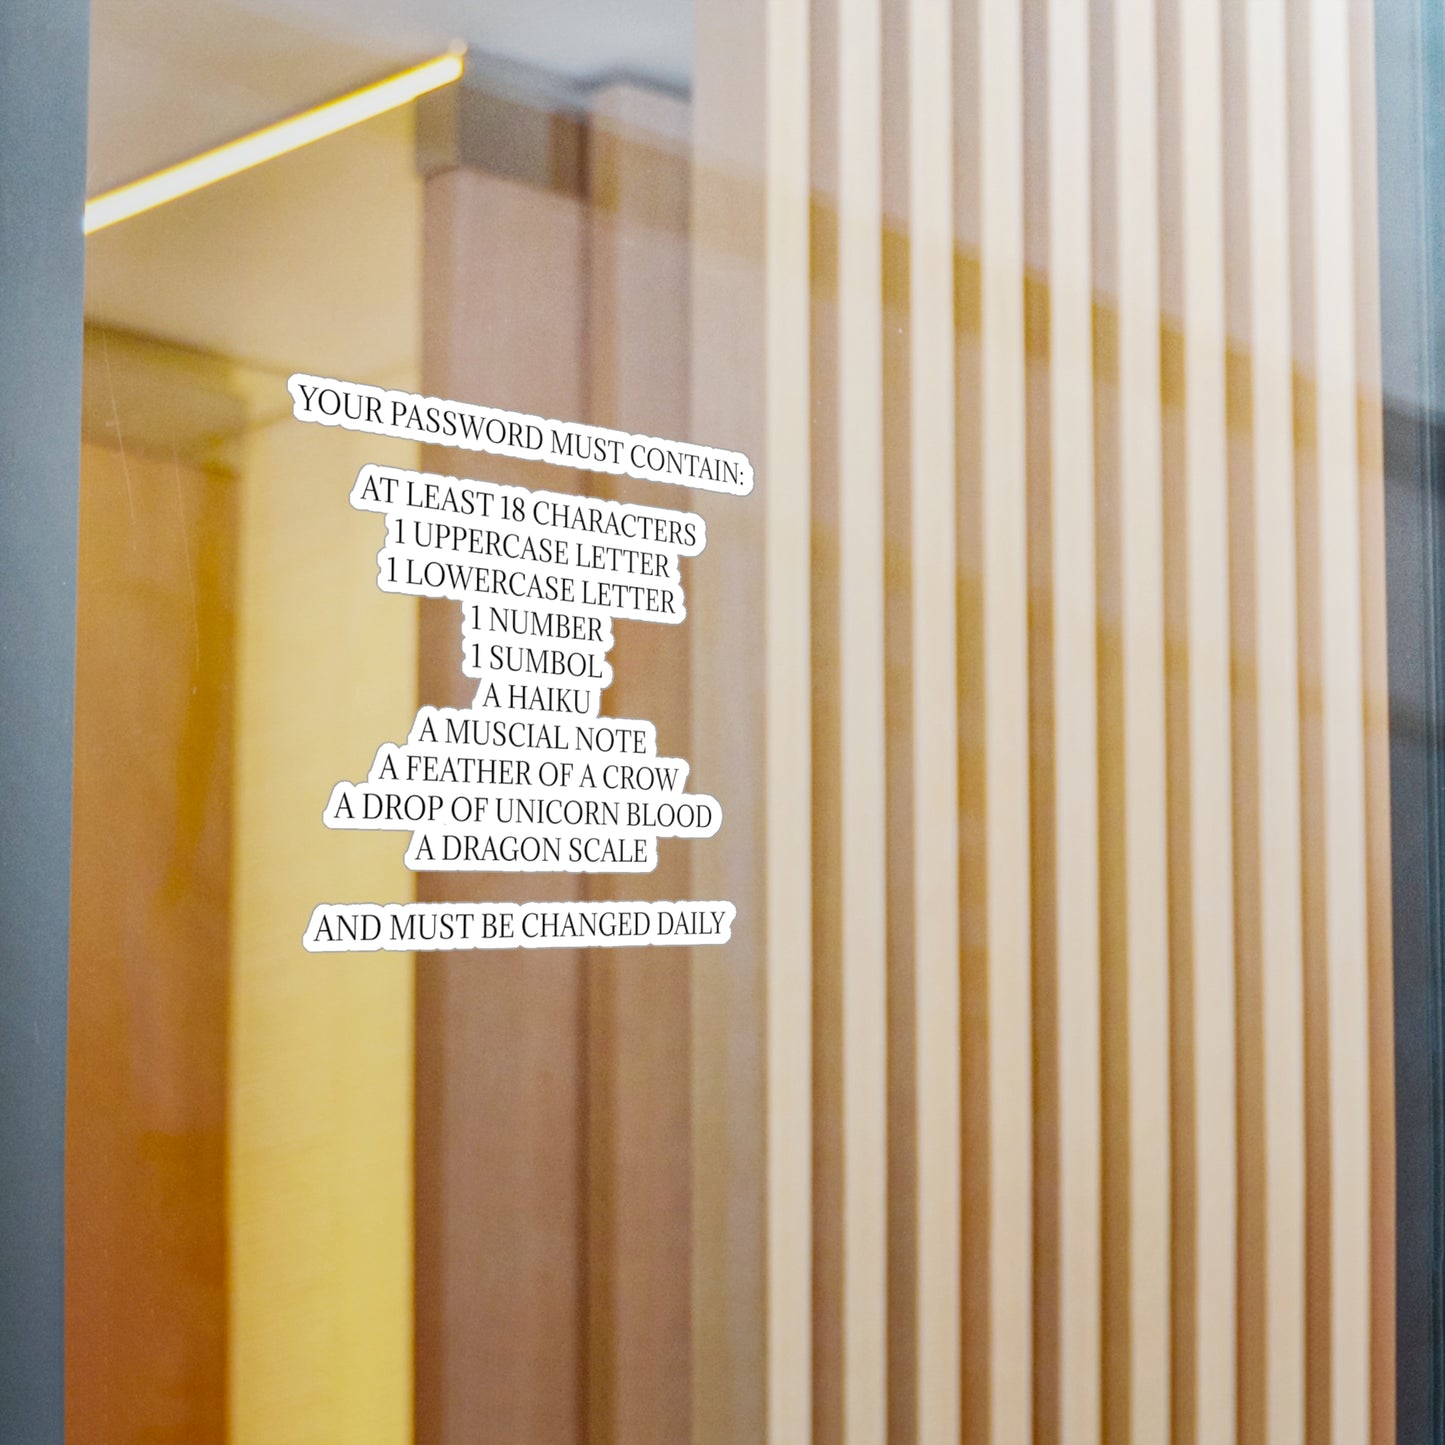 YOUR PASSWORD MUST CONTAIN:
AT LEAST 18 CHARACTERS
1 UPPERCASE LETTER
1 LOWERCASE LETTER
1 NUMBER
1 SUMBOL
A HAIKU
A MUSCIAL NOTE
A FEATHER OF A CROW
A DROP OF UNICORN BLOOD
A DRAGON SCALE
AND MUST BE CHANGED DAILY